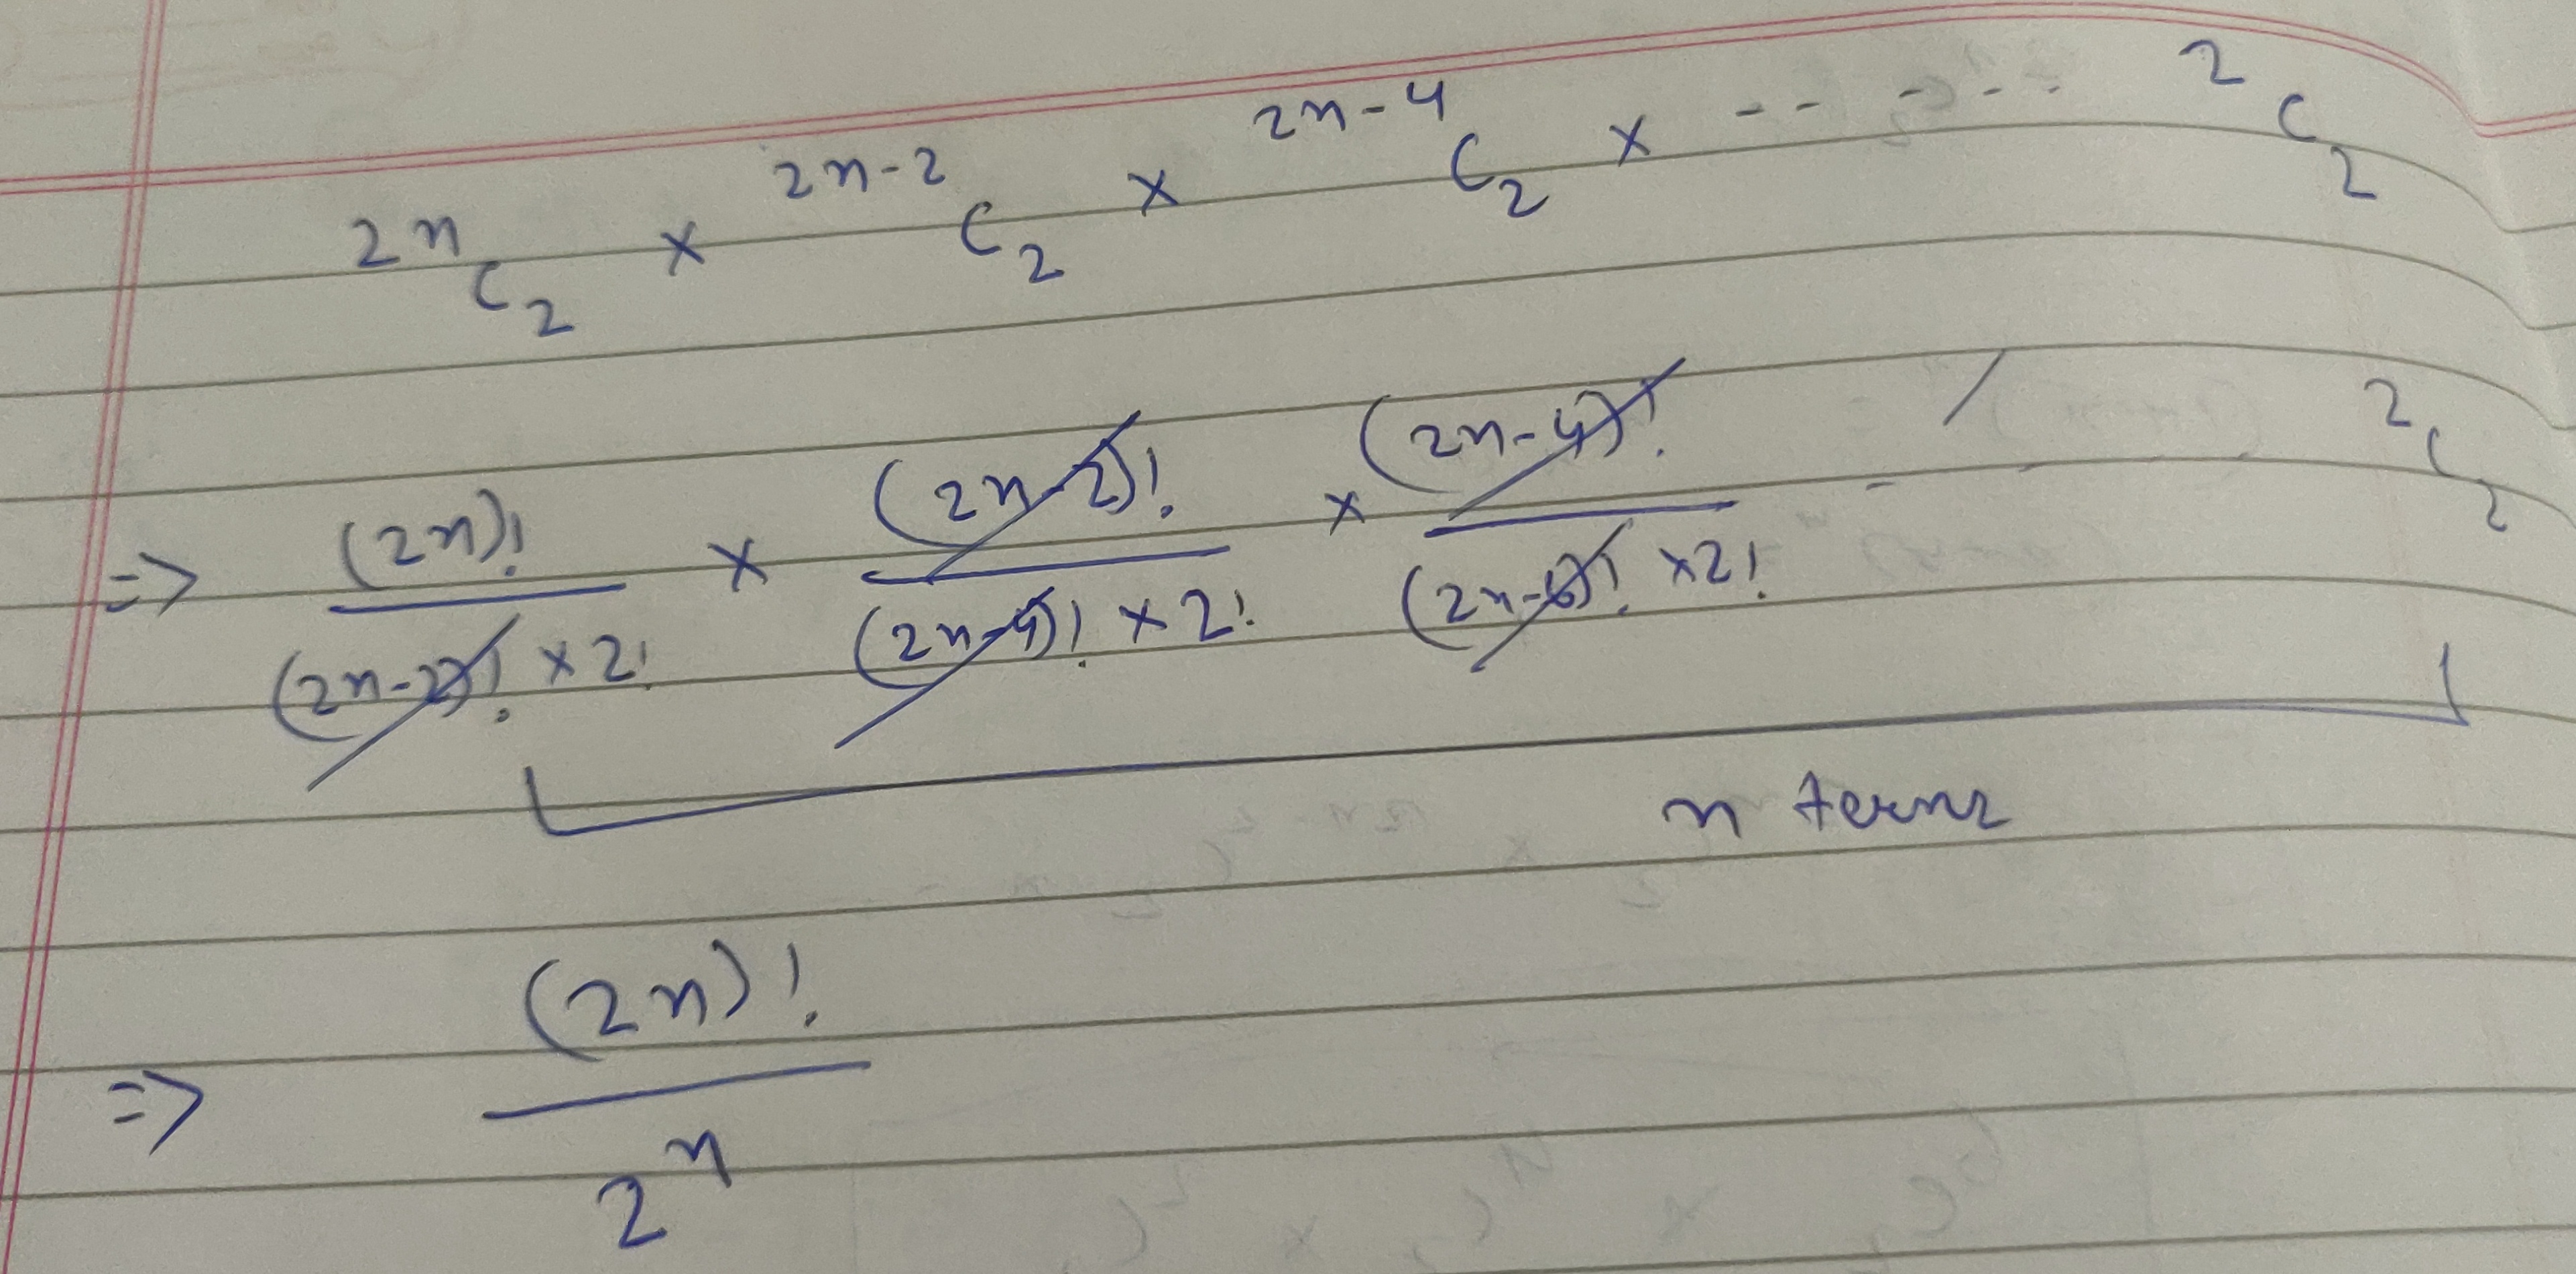 ²ⁿC₂ × ²ⁿ⁻²C₂ × ²ⁿ⁻⁴C₂ × - - - - - ²C₂
=> (2n)! / ((2n-2)! × 2!) × (2n-2)! / ((2n-4)! × 2!) × (2n-4)! / ((2n-6)! × 2!) - - ²C₂
n terms
=> (2n)! / 2ⁿ